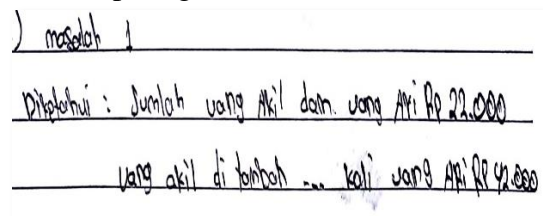 ) masalah 1
Diketahui : Jumlah uang Akil dan uang Ari Rp 22.000
uang akil di tambah ... kali uang Ari Rp 42.000